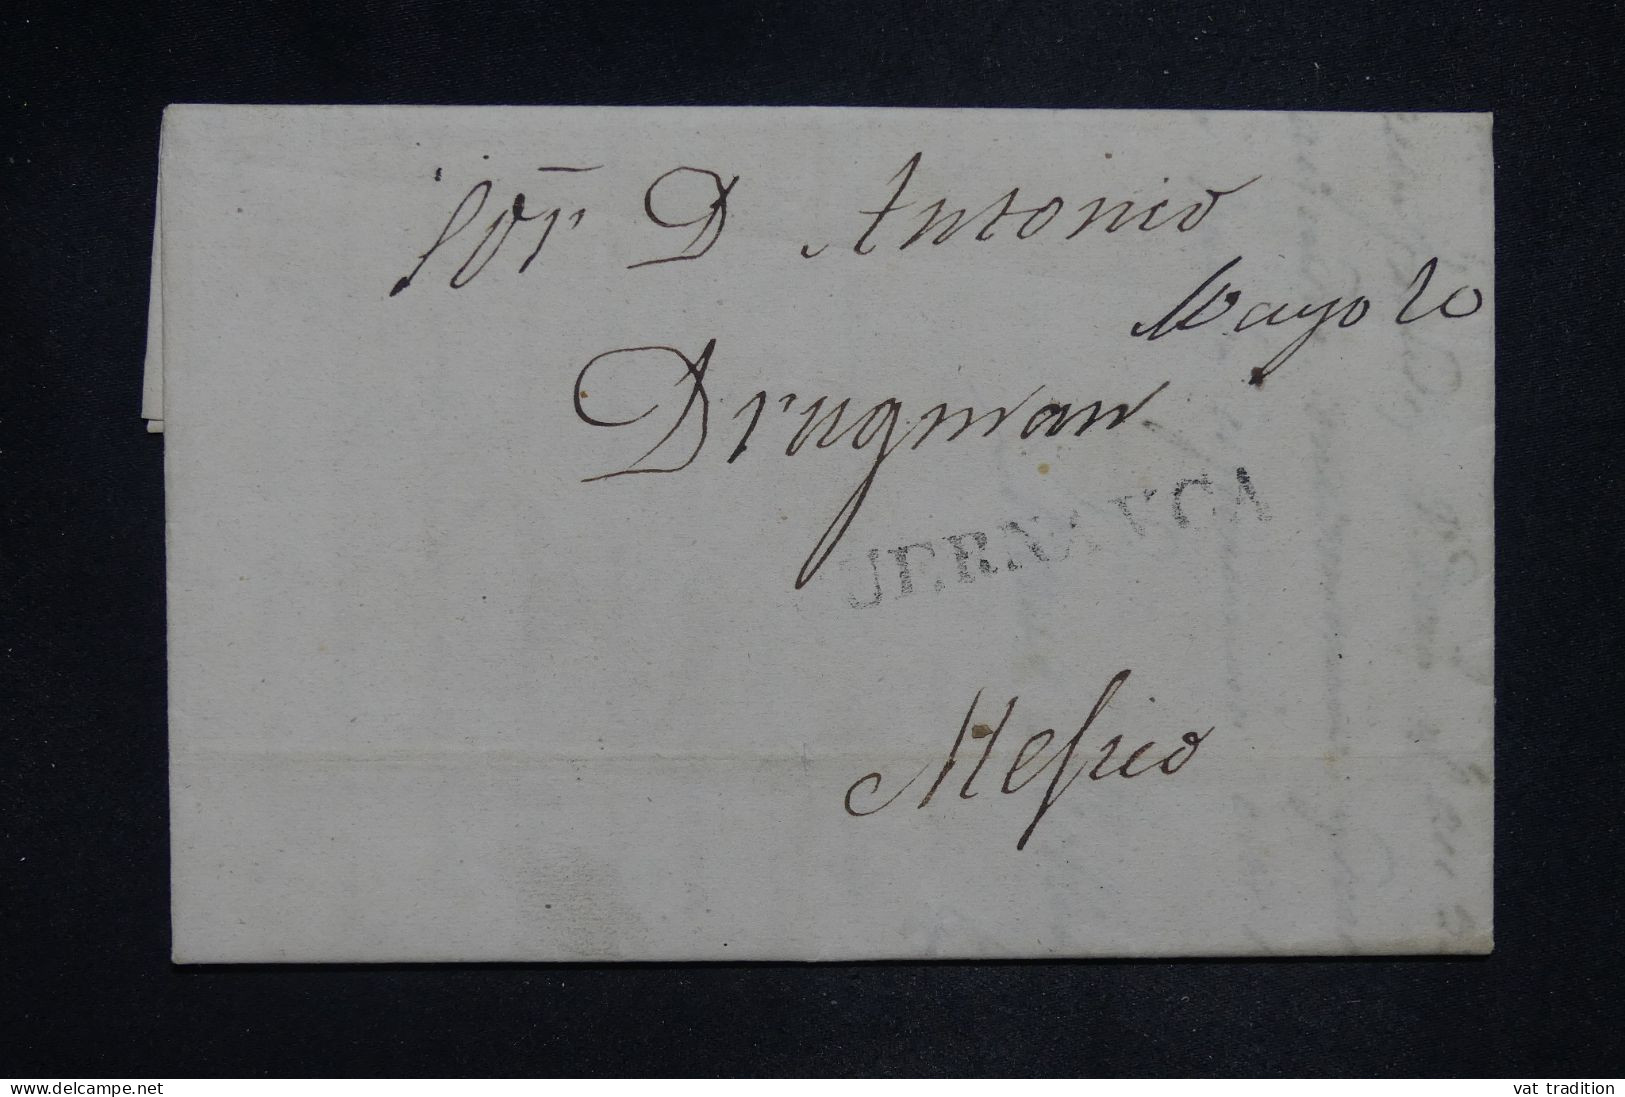 Sor D Antonio
Mayo 20
Drugman
UERNAVCA
Mefsico
www.delcampe.net
vat tradition